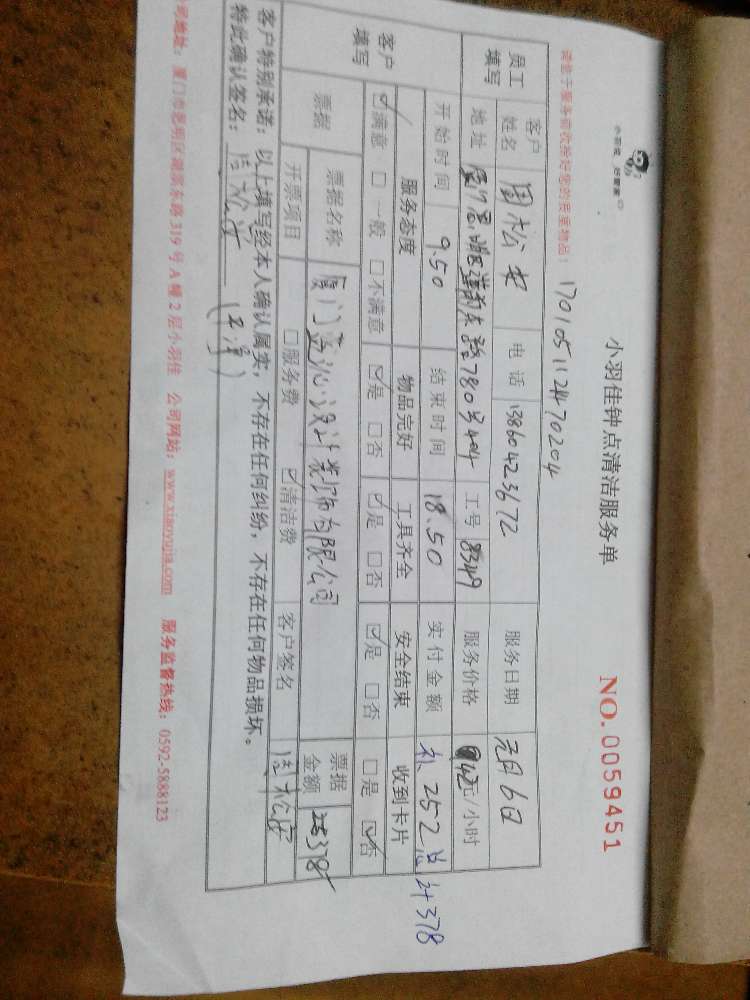 小羽佳 好管家
小羽佳钟点清洁服务单
NO. 0059451
请您于服务前收拾好您的贵重物品： 170105112470204
员工填写 客户姓名 周松安 电话 13860423672 服务日期 元月6日
地址 780号404 工号 8349 服务价格 42元/小时
客户填写 开始时间 9.50 结束时间 18.50 实付金额 补252 总计378
服务态度 物品完好 工具齐全 安全结束 收到卡片
☑满意 □一般 □不满意 ☑是 □否 ☑是 □否 ☑是 □否 □是 ☑否
票据 票据名称 厦门 设计装饰有限公司 票据金额 378
开票项目 □服务费 ☑清洁费 客户签名 周松安
客户特别承诺：以上填写经本人确认属实，不存在任何纠纷，不存在任何物品损坏。
特此确认签名： 周松安
公司地址：厦门市思明区湖滨东路319号A幢2层小羽佳 公司网站：www.xiaoyujia.com 服务监督热线：0592-5888123